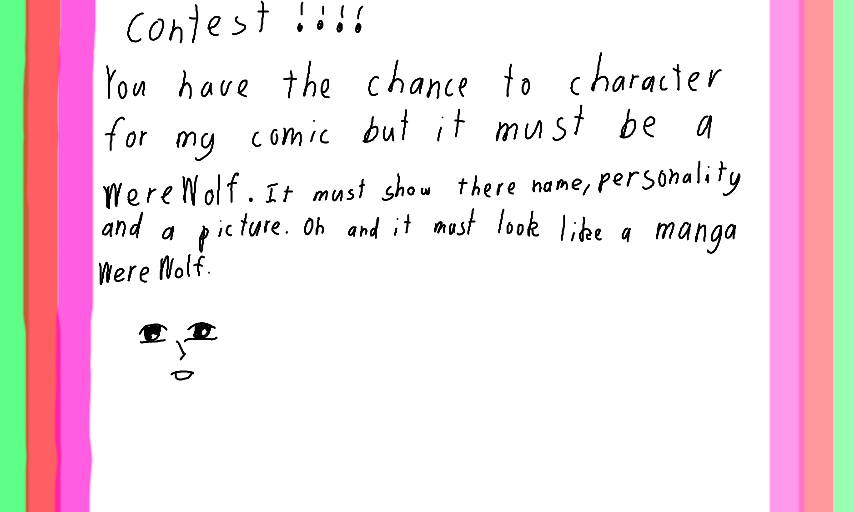 Contest !!!!
You have the chance to character
for my comic but it must be a
WereWolf. It must show there name, personality
and a picture. Oh and it must look like a manga
WereWolf.